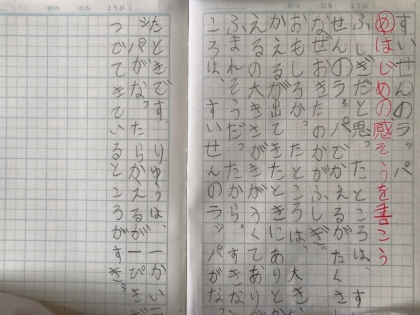 すいせんのラッパ
めはじめの感そうを書こう
ふしぎだと思ったところは、す
せんのラッパでかえるがたくさ
なぜおきたのかがふしぎ。
おもしろかったところは、大き
かえるが出てきたとき
える
ふまれそうだったから。すきな
ころは、すいせんのラッパがな
たときです。りゆうは、一かい一
パッとがなったらかえるが一ぴき
つでてきているところがすき。